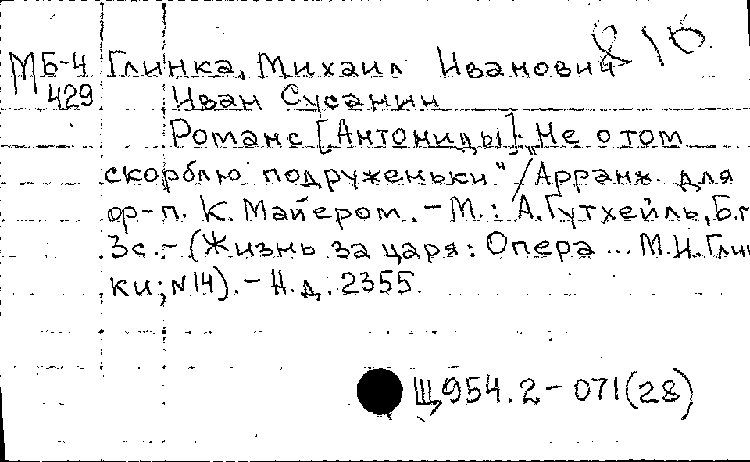 810
МБ-4 Глинка, Михаил Иванович
429 Иван Сусанин
Романс [Антониды]: „Не о том
скорблю подруженьки" / Арранж. для
ф-п. К. Майером. - М.: А. Гутхейль, Б.г.
3с. - (Жизнь за царя: Опера ... М.И. Глин
ки; №14). - Н.д. 2355.
Щ954.2-071(28)